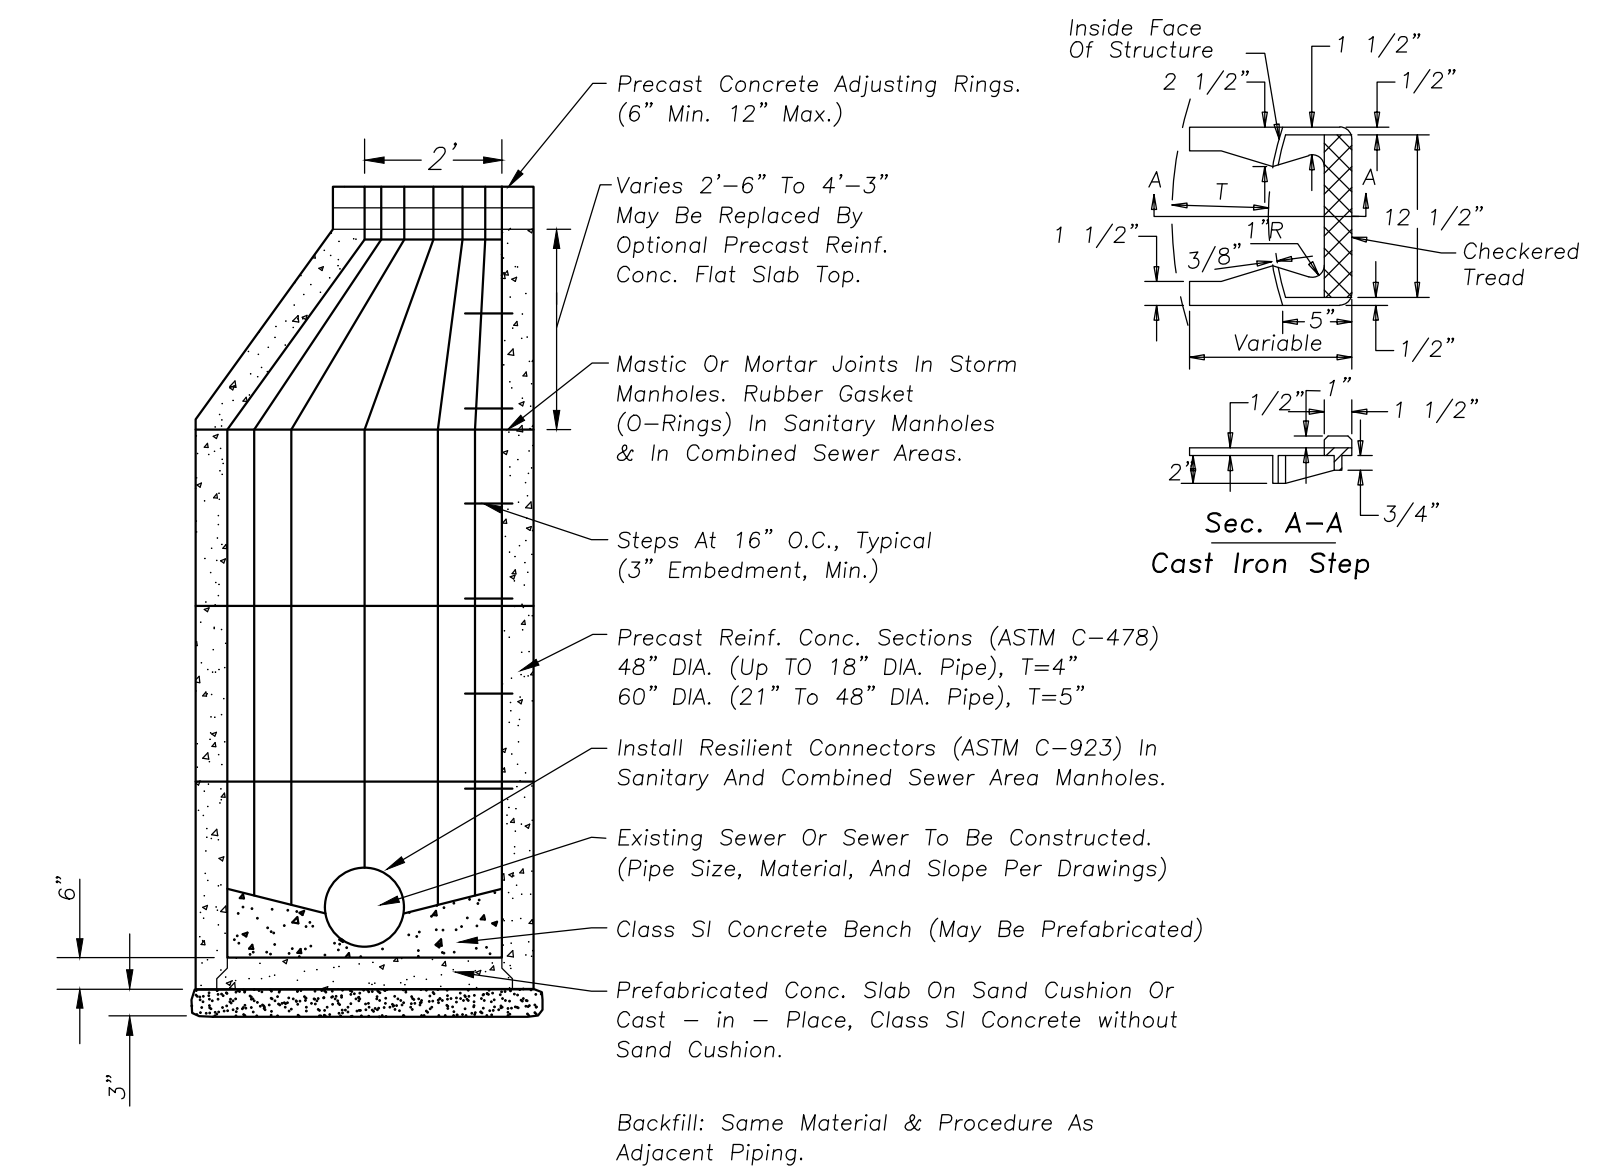 Precast Concrete Adjusting Rings.
(6” Min. 12” Max.)
2’
Varies 2’–6” To 4’–3”
May Be Replaced By
Optional Precast Reinf.
Conc. Flat Slab Top.
Mastic Or Mortar Joints In Storm
Manholes. Rubber Gasket
(O–Rings) In Sanitary Manholes
& In Combined Sewer Areas.
Steps At 16” O.C., Typical
(3” Embedment, Min.)
Precast Reinf. Conc. Sections (ASTM C–478)
48” DIA. (Up TO 18” DIA. Pipe), T=4”
60” DIA. (21” To 48” DIA. Pipe), T=5”
Install Resilient Connectors (ASTM C–923) In
Sanitary And Combined Sewer Area Manholes.
Existing Sewer Or Sewer To Be Constructed.
(Pipe Size, Material, And Slope Per Drawings)
6”
Class SI Concrete Bench (May Be Prefabricated)
Prefabricated Conc. Slab On Sand Cushion Or
Cast – in – Place, Class SI Concrete without
Sand Cushion.
3”
Backfill: Same Material & Procedure As
Adjacent Piping.
Inside Face
Of Structure
1 1/2”
2 1/2”
1/2”
A
T
A
12 1/2”
1 1/2”
1”R
3/8”
Checkered
Tread
5”
Variable
1/2”
1”
1/2”
1 1/2”
2”
3/4”
Sec. A–A
Cast Iron Step